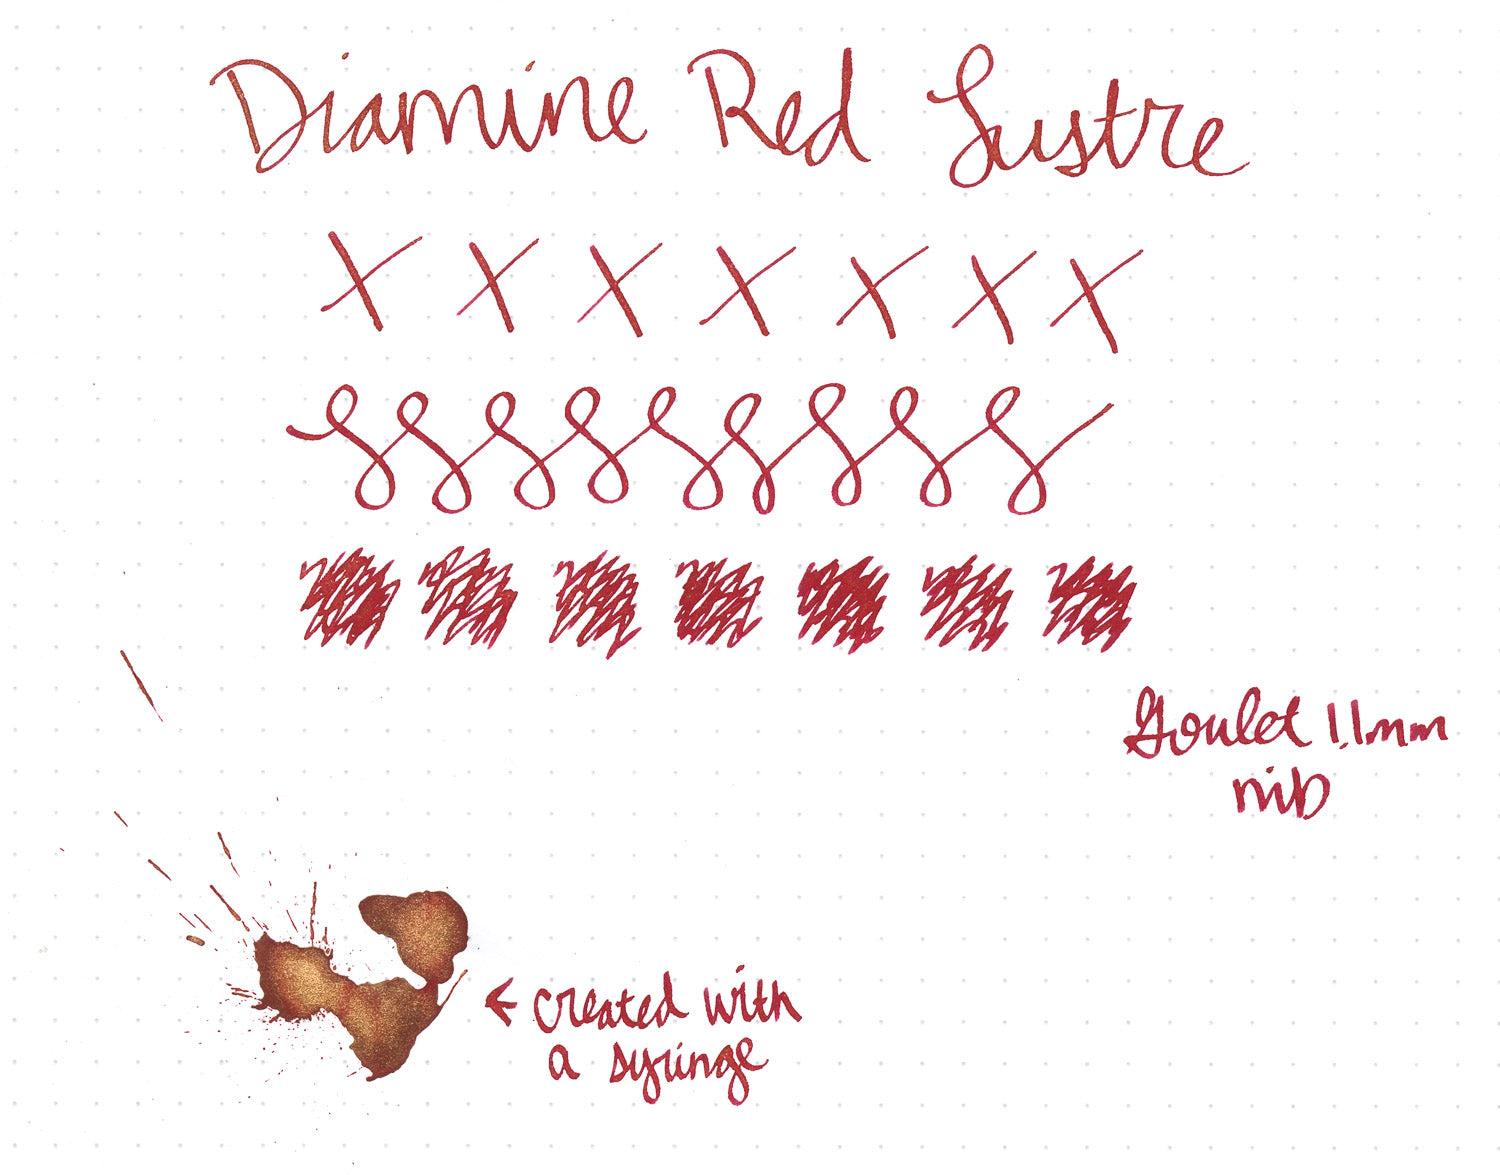 Diamine Red Lustre
x x x x x x x
Goulet 1.1mm
nib
← created with
a syringe